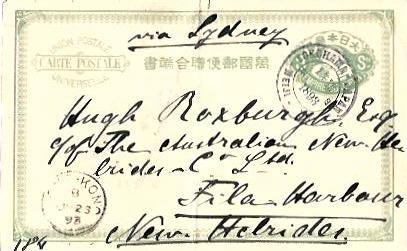 via Sydney
UNION POSTALE
CARTE POSTALE
UNIVERSELLE
大日本
萬國郵便聯合端書
YOKOHAMA JAPAN
Hugh Roxburgh Esq
c/o The Australian New He-
brides Co Ltd.
Fila Harbour
New Hebrides
HONG KONG
23
98